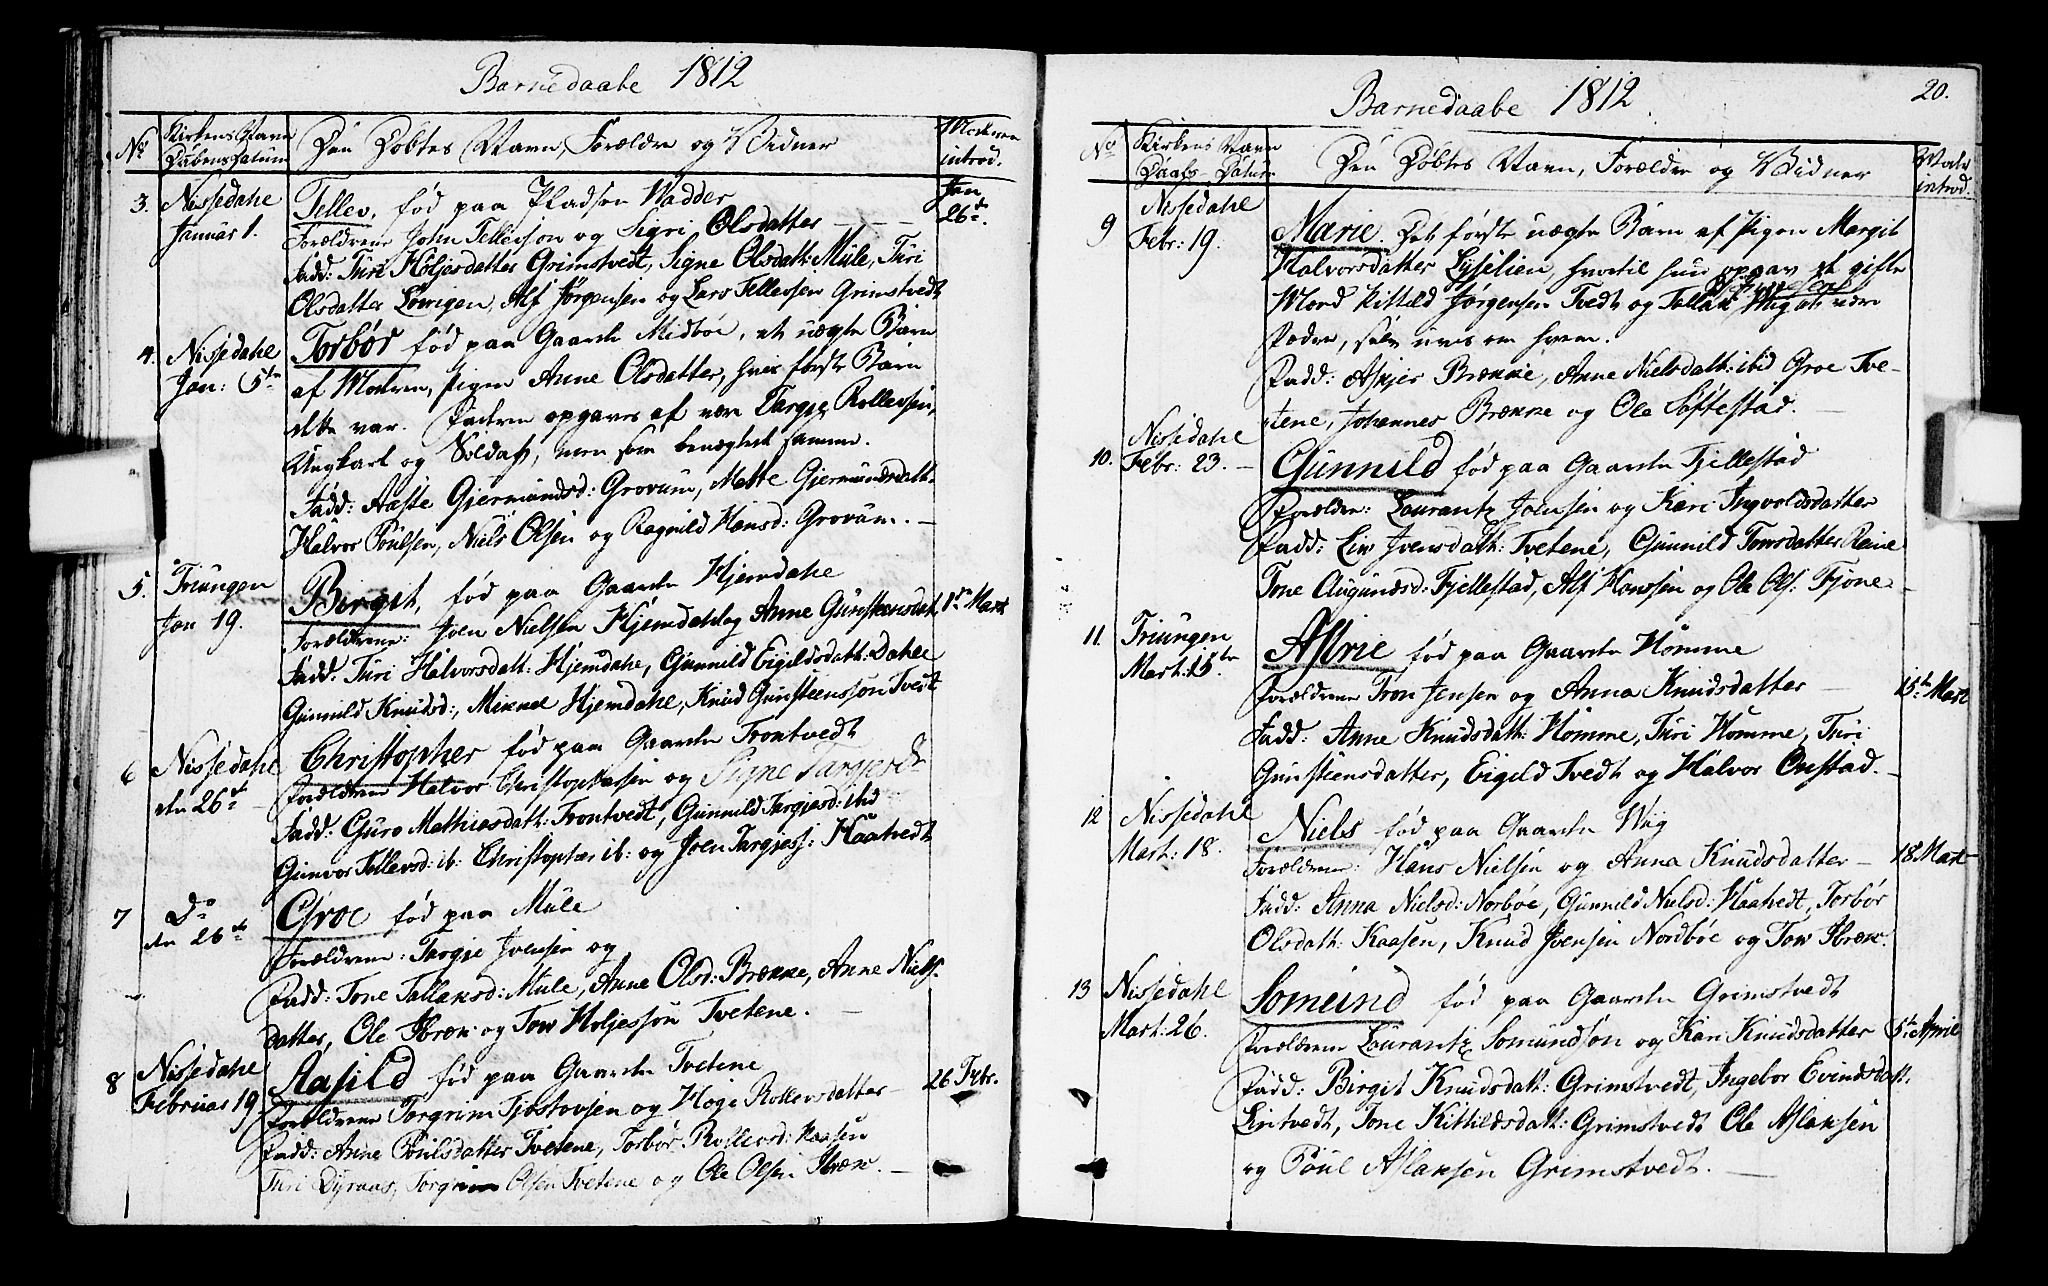 Barnedaabe 1812
No Kirkens Navn Daabens Datum Den Døbtes Navn, Forældre og Vidner Moderen introd.
3. Nissedahl Januar 1. Tellev, fød paa Pladsen Wadder Jan 26de
Forældrene John Tellefsson og Sigri Olsdatter
Fadd: Turi Holjesdatter Grimstvedt, Signe Olsdatt: Mule, Turi
Olsdatter Løvrigen, Alf Jørgensen og Lars Tellefsen Grimstvedt
4. Nissedahl Jan: 5te Torbør fød paa Gaarden Midbøe, et uægte Barn
af Moderen, Pigen Anne Olsdatter, hvis første Barn
dette var. Faderen opgaves af være Targie Rollefsen,
Ungkarl og Soldat, men som benægtede samme.
Fadd: Aaste Gjermundsd: Grovum, Mette Gjermundsdatt:
Halvor Poulsen, Niels Olsen og Ragnild Hansd: Grovum. —
5. Triungen Jan 19. Birgit, fød paa Gaarden Hjemdahl
Forældrene: Joen Nielsen Hjemdahl og Anne Gunsteensdat. 1ste Mart
Fadd: Turi Halvorsdatt: Hjemdahl, Gunnild Eigildsdatt: Dahle
Gunnild Knudsd:, Mikkel Hjemdahl, Knud Gunsteensson Tvedt
6 Nissedahl den 26de Christopher fød paa Gaarden Trontvedt
Forældrene Halvor Christophersen og Signe Targiesd
Fadd: Guro Mathiesdatt: Trontvedt, Gunnild Targiesd: ibid
Gunvor Tellevsd: ib: Christopher ib: og Joen Targiess: Haatvedt
7 Do den 26de Groe fød paa Mule
Forældrene: Targie Jvensen og
Fadd: Tone Tallaksd: Mule, Anne Olsd: Brekke, Anne Niels-
datter, Ole Træn og Tow Holjesson Tvetene. —
8 Nissedahl Februar 19 Aasild fød paa Gaarden Tvetene 26 Febr.
Forældrene Torgrim Tjostovsen og Høge Rollevsdatter
Fadd: Anne Poulsdatter Tvetene, Torbør Rollevsd: Kaasen
Turi Dyraas, Torgrim Olsen Tvetene og Ole Olsen Træn. —
Barnedaabe 1812. 20.
No Kirkens Navn Daabs-Datum Den Døbtes Navn, Forældre og Vidner Mode introd.
9 Nissedahl Febr: 19. Marie. Det første uægte Barn af Pigen Margit
Halvorsdatter Lyselien, hvortil hun opgav et gifte
Mand Kittild Jørgensen Tvedt og Tallak Wig at være
Fader, selv uvis om hvem.
Fadd: Asbjør Brekke, Anne Nielsdatt: ibid Groe Tve-
tene, Johannes Brekke og Ole Søftestad. —
10. Nissedahl Febr: 23. — Gunnild fød paa Gaarden Fjellestad
Forældre: Laurantz Johnsen og Kari Ingvoldsdatter
Fadd: Liv Jvensdatt: Tvetene, Gunnild Towsdatter Reine
Tone Augundsd: Fjellestad, Alf Hanssen og Ole Ols: Fjone —
11. Triungen Mart: 15de Astrie fød paa Gaarden Homme
Forældrene Tron Jensen og Anna Knudsdatter — 15de Mart
Fadd: Anne Knudsdatt: Homme, Turi Homme, Turi
Gunsteensdatter, Eigild Tvedt og Halvor Onstad. —
12 Nissedahl Mart: 18. Niels fød paa Gaarden Wiig
Forældrene: Hans Nielsen og Anna Knudsdatter — 18 Mart
Fadd: Anna Nielsd: Norbøe, Gunnild Nielsd: Haatvedt, Torbør
Olsdatt: Kaasen, Knud Jvensen Nordbøe og Tow Træn.
13 Nissedahl Mart: 26. Someind fød paa Gaarden Grimstvedt
Forældrene Laurantz Somundson og Kari Knudsdatter 5te April
Fadd: Birgit Knudsdatt: Grimstvedt, Ingebor Evindsdatt.
Lintvedt, Tone Kittildsdatt: Grimstvedt Ole Aslaksen
og Poul Aslaksen Grimstvedt. —